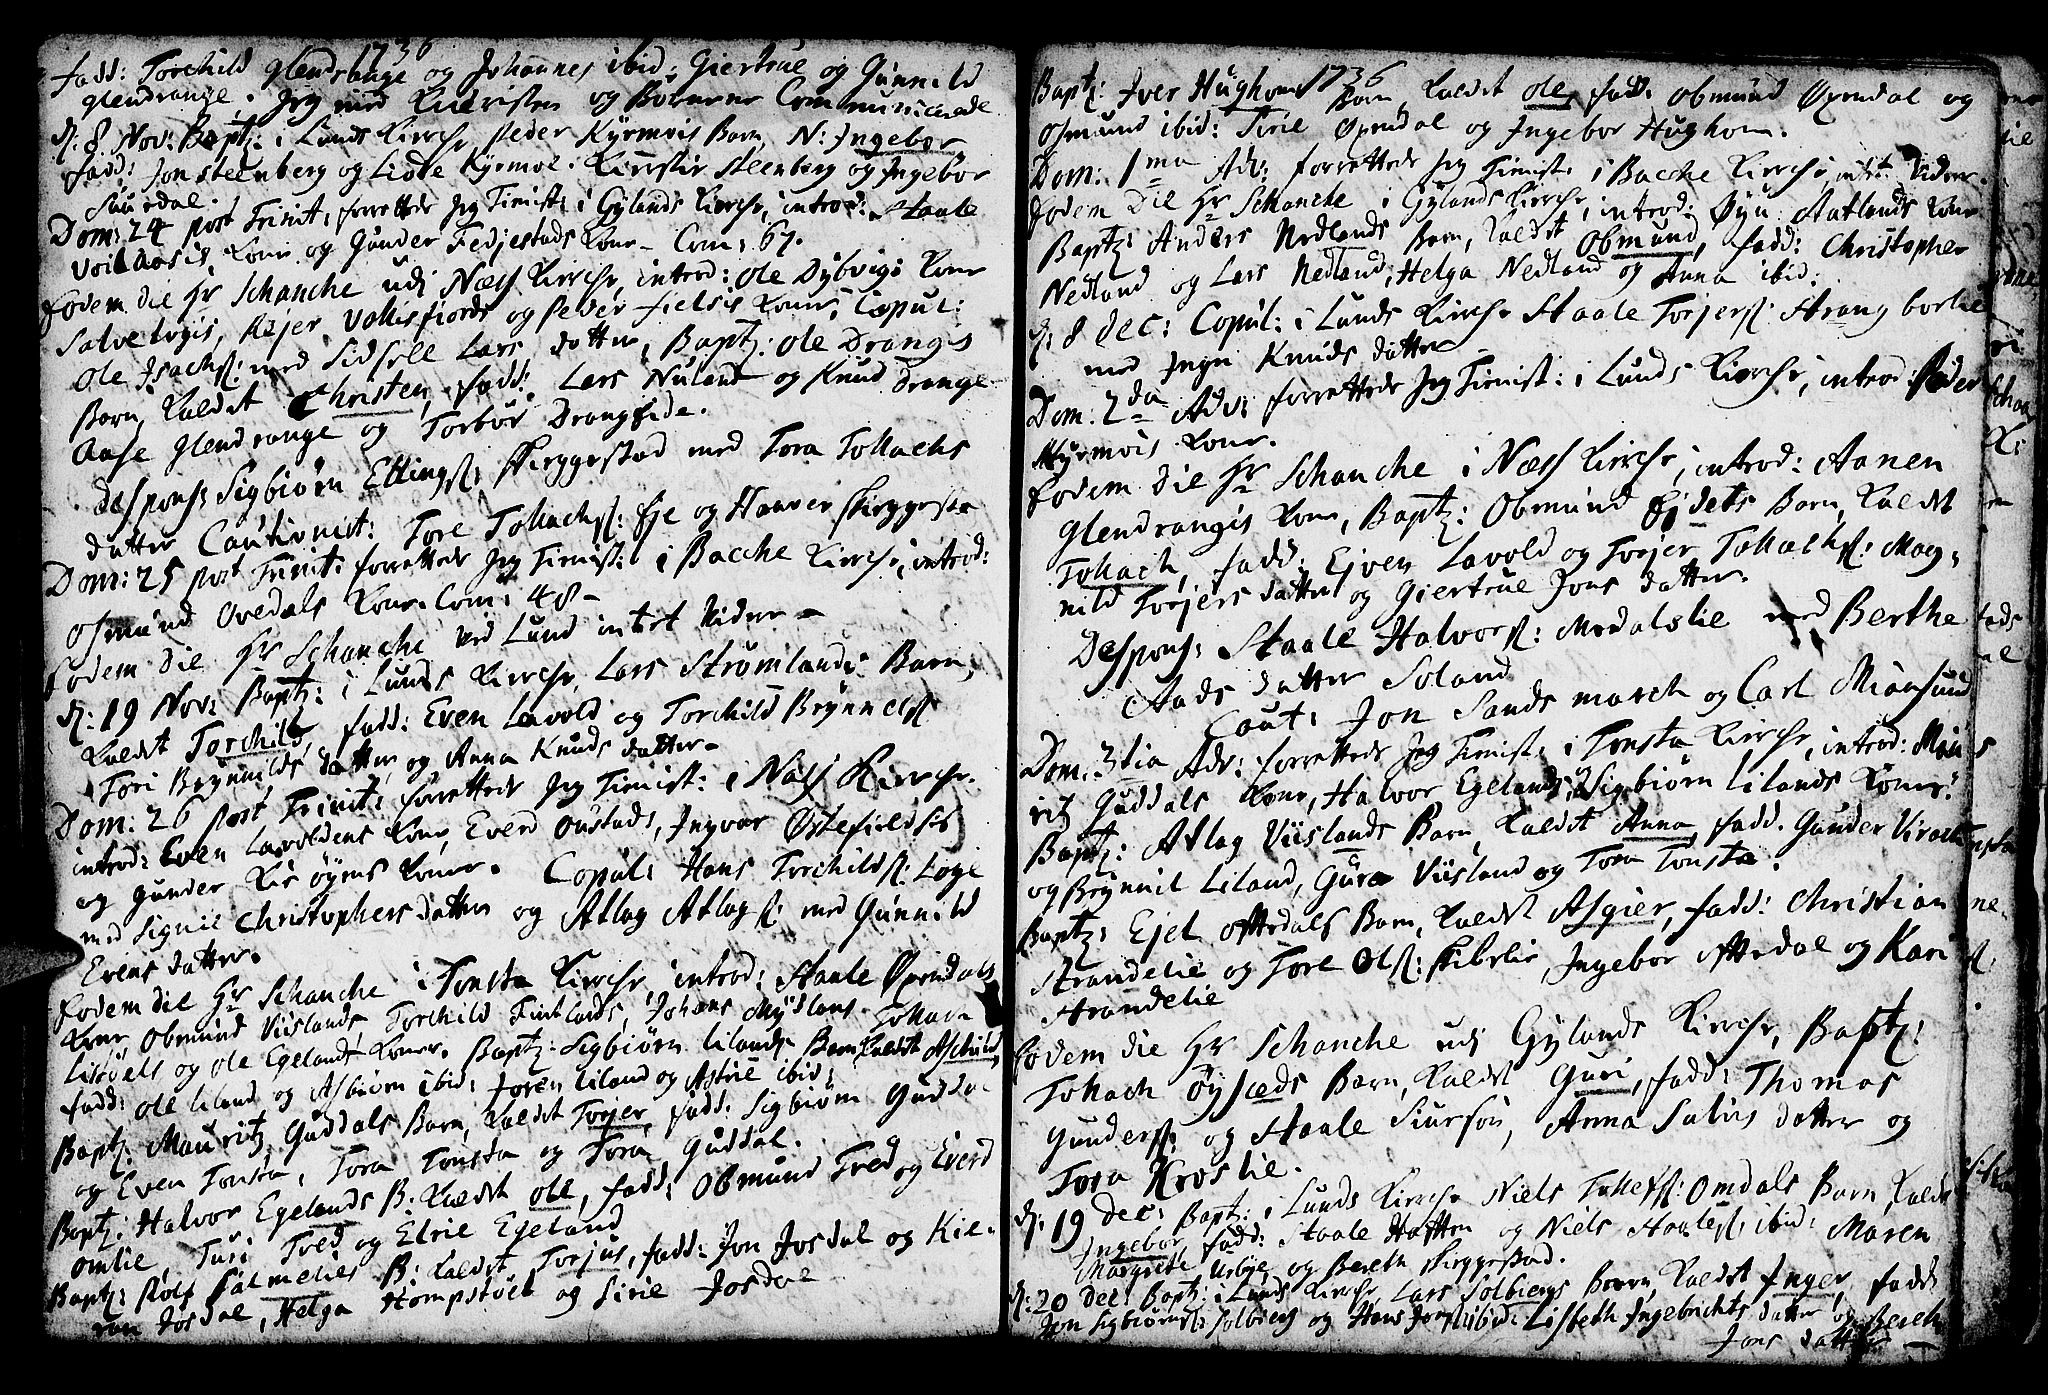 1736
fadd: Torchild Glendrange og Johannes ibid: Giertrue og Gunnild
Glendrange. Jeg med og Børnene Communicerede
d: 8 Nov: Bapt: i Lunds Kirche Peder Kyrmois Barn, N: Ingebor
fadd: Jon Steenberg og Kyrmoe. Kirstir Steenberg og Ingebor
Suusdal.
Dom: 24 post Trinit: forrettede Jeg Tienist: i Gylands Kirche, introd: Staale
Kone og Gunder Fedjestads Kone - Com: 67.
Eodem die Hr Schanche udj Næss Kirche, introd: Ole Dybvigs Kone
Salve Logis, Rejer Vollisfiords og Peder Koner, Copul:
Ole Isachs: med Sidsele Lars datter, Baptz: Ole Drangs
Barn, Kaldet Christen, fadd: Lars Nuland og Knud Drange
Aase Glendrange og Torbor Drangside.
Despons: Sigbiørn Ellings: Skieggestad med Tora Tollachs
datter Cautionist: Tore Tollachs: Eje og Haaver Skieggestad
Dom: 25 post Trinit: forrettede Jeg Tienist: i Bacche Kirche, introd:
Osmund Ovedals Kone. Com: 48 -
Eodem die Hr Schanche ved Lund intet videre -
d: 19 Nov: Baptz: i Lunds Kirche, Lars Strømlands Barn,
Kaldet Torchild, fadd: Even Lavold og Torchild Brynnels:
Tori Brynnilds datter og Anna Knuds datter -
Dom: 26 post Trinit: forrettede Jeg Tienist: i Næss Kirche.
introd: Even Lavoldens Kone, Everd Oustads, Ingvar Østefieldsis
og Gunder Kirøyens Koner. Copul: Hans Torchilds: Loge
med Signil Christophers datter og Atlag Atlags: med Gunnild
Evens datter.
Eodem die Hr Schanche i Tonsta Kirche, introd: Staale Øxendals
Kone, Obmund Viislands, Torchild Fintlands, Johans Myglans Tollach
Listøels og Ole Egelands Koner. Baptz: Sigbiørn Lilands Barn Kaldet Aschild,
fadd: Ole Liland og Asbiørn ibid: Joren Liland og Astrie ibid:
Baptz: Mauritz Guddals Barn, Kaldet Torjer, fadd: Sigbiørn Guddal
og Even Tonsta, Tora Tonsta og Tora Guddal.
Baptz: Halvor Egelands B: Kaldet Ole, fadd: Obmund Tred og Everd
Omlie, Turi Tred og Elsie Egeland
Baptz: Rolf B: Kaldet Torjus, fadd: Jon Josdal og Kie-
ran Josdal, Helga Hompstøel og Sirie Josdal
1736
Baptz: Iver Hughoms Barn Kaldet Ole, fadd: Obmund Øxendal og
Osmund ibid: Sirie Øxendal og Ingebor Hughom.
Dom: 1ma Adv: forrettede Jeg Tienist: i Bacche Kirche, intet Videre.
Eodem Die Hr Schanche i Gylands Kirche, introd: Øyn Aatlands Kone
Baptz: Anders Nedlands Barn, Kaldet Obmund, fadd: Christopher
Nedland og Lars Nedland, Helga Nedland og Anna ibid:
d: 8 Dec: Copul: i Lunds Kirche Staale Torjers: Strangborlie
med Inger Knuds datter
Dom: 2da Adv: forrettede Jeg Tienist: i Lunds Kirche, introd: Peder
Kyrmois Kone.
Eodem Die Hr Schanche i Næss Kirche, introd: Aanen
Glendrangis Kone, Baptz: Obmund Ejdets Barn, Kaldet
Tollach, fadd: Ejven Lavold og Torjer Tollachs: Mag-
nild Torjers datter og Giertrue Jons datter.
Despons: Staale Halvors: Medalslie med Berthe
Aads datter Soland
Caut: Jon Sandsmarch og Carl Miønsund
Dom: 3tia Adv: forrettede Jeg Tienist: i Tonsta Kirche, introd: Mau-
ritz Guddals Kone, Halvor Egelands, Sigbiørn Lilands Koner.
Baptz: Atlag Viislands Barn, Kaldet Anna, fadd. Gunder Virach
og Brynnil Liland, Guro Viisland og Tora Tonsta.
Baptz: Ejel Oftedals Barn, Kaldet Asgier, fadd: Christian
Strandelie og Tore Ols: Skibslie, Ingebor Oftedal og Kari
Strandelie
Eodem Die Hr Schanche udj Gylands Kirche, Baptz:
Tollach Øysæds Barn, Kaldet Guri, fadd: Thomas
Gunders: og Staale Siursøn, Anna Salvis datter og
Tora Kroslie.
d: 19 Dec: Bapt: i Lunds Kirche Niels Tolless: Omdals Barn, Kaldet
Ingebor, fadd: Staale Haften og Niels Staales: ibid: Maren
Margrete Ursbye, og Bereth Skieggestad.
d: 20 Dec: Baptz: i Lunds Kirche, Lars Solbiergs Barn, Kaldet Inger, fadd:
Jon Sigbiørns: Solbierg og Hans Jons: ibid: Lisbeth Ingebrichts datter og Bereth
Jons datter -